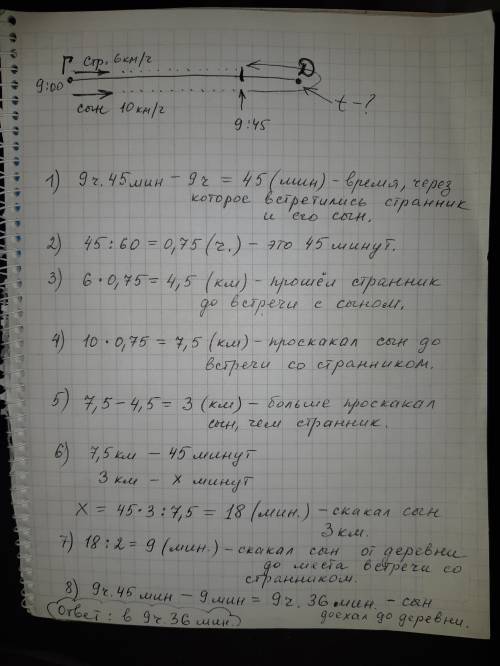 Г стр. 6 км/ч Д
9:00
сын 10 км/ч t - ?
9:45
1) 9 ч. 45 мин - 9 ч = 45 (мин) - время, через
которое встретились странник
и его сын.
2) 45 : 60 = 0,75 (ч.) - это 45 минут.
3) 6 · 0,75 = 4,5 (км) - прошёл странник
до встречи с сыном.
4) 10 · 0,75 = 7,5 (км) - проскакал сын до
встречи со странником.
5) 7,5 - 4,5 = 3 (км) - больше проскакал
сын, чем странник.
6) 7,5 км - 45 минут
3 км - x минут
X = 45 · 3 : 7,5 = 18 (мин.) - скакал сын
3 км.
7) 18 : 2 = 9 (мин.) - скакал сын от деревни
до места встречи со
странником.
8) 9 ч. 45 мин - 9 мин = 9 ч. 36 мин. - сын
доехал до деревни.
(Ответ : в 9 ч. 36 мин.)